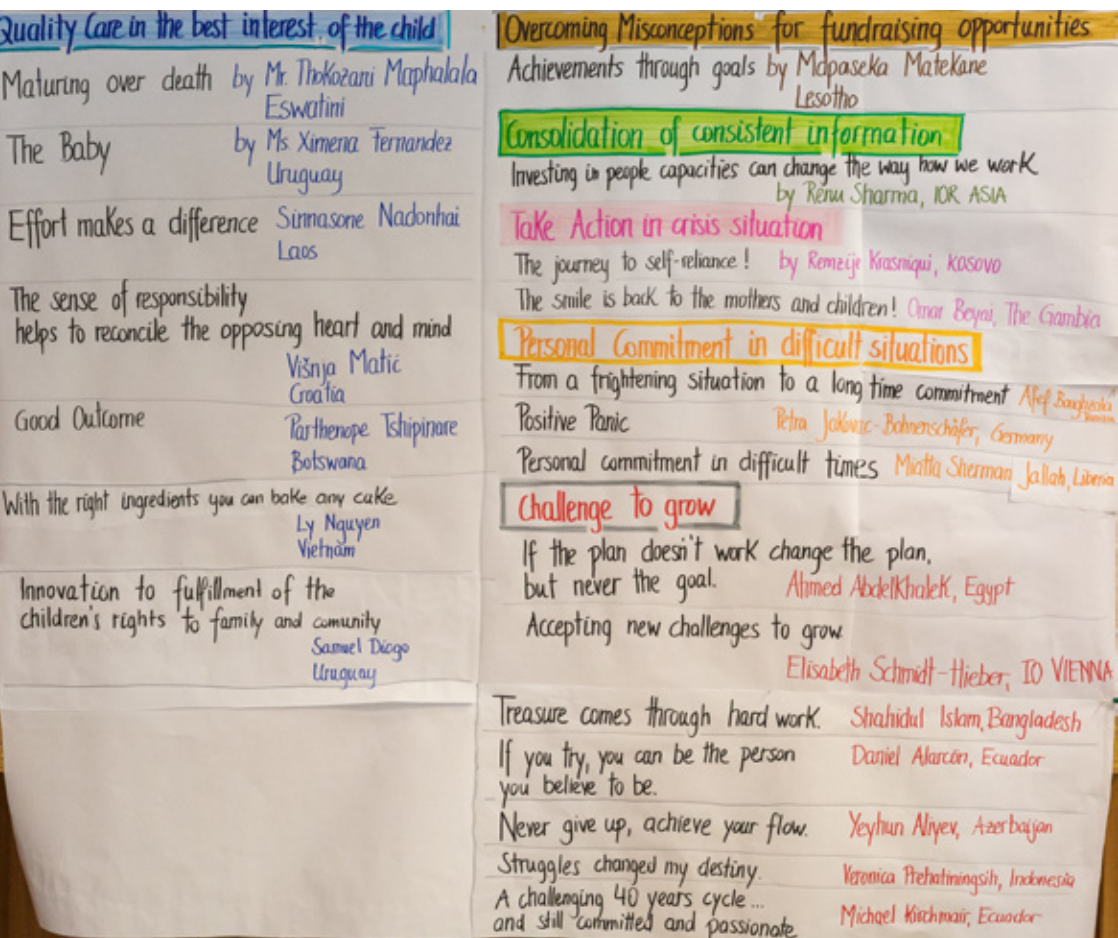 Quality Care in the best interest of the child
Maturing over death by Mr. Thokozani Maphalala
Eswatini
The Baby by Ms Ximena Fernandez
Uruguay
Effort makes a difference Sinnasone Nadonhai
Laos
The sense of responsibility
helps to reconcile the opposing heart and mind
Višnja Matić
Croatia
Good Outcome Parthenope Tshipinare
Botswana
With the right ingredients you can bake any cake
Ly Nguyen
Vietnam
Innovation to fulfillment of the
children's rights to family and comunity
Samuel Diogo
Uruguay
Overcoming Misconceptions for fundraising opportunities
Achievements through goals by Mapaseka Matekane
Lesotho
Consolidation of consistent information
Investing in people capacities can change the way how we work
by Renu Sharma, IOR ASIA
Take Action in crisis situation
The journey to self-reliance! by Remzije Krasniqui, KOSOVO
The smile is back to the mothers and children! Omar Beyai, The Gambia
Personal Commitment in difficult situations
From a frightening situation to a long time commitment Afef
Positive Panic Petra Jakovac-Bohnenschäfer, Germany
Personal commitment in difficult times Miatta Sherman Jallah, Liberia
Challenge to grow
If the plan doesn't work change the plan,
but never the goal. Ahmed Abdelkhalek, Egypt
Accepting new challenges to grow
Elisabeth Schmidt-Hieber, IO VIENNA
Treasure comes through hard work. Shahidul Islam, Bangladesh
If you try, you can be the person Daniel Alarcón, Ecuador
you believe to be.
Never give up, achieve your flow. Yeyhun Aliyev, Azerbaijan
Struggles changed my destiny. Veronica Prehatiningsih, Indonesia
A challenging 40 years cycle...
and still committed and passionate Michael Kirchmair, Ecuador